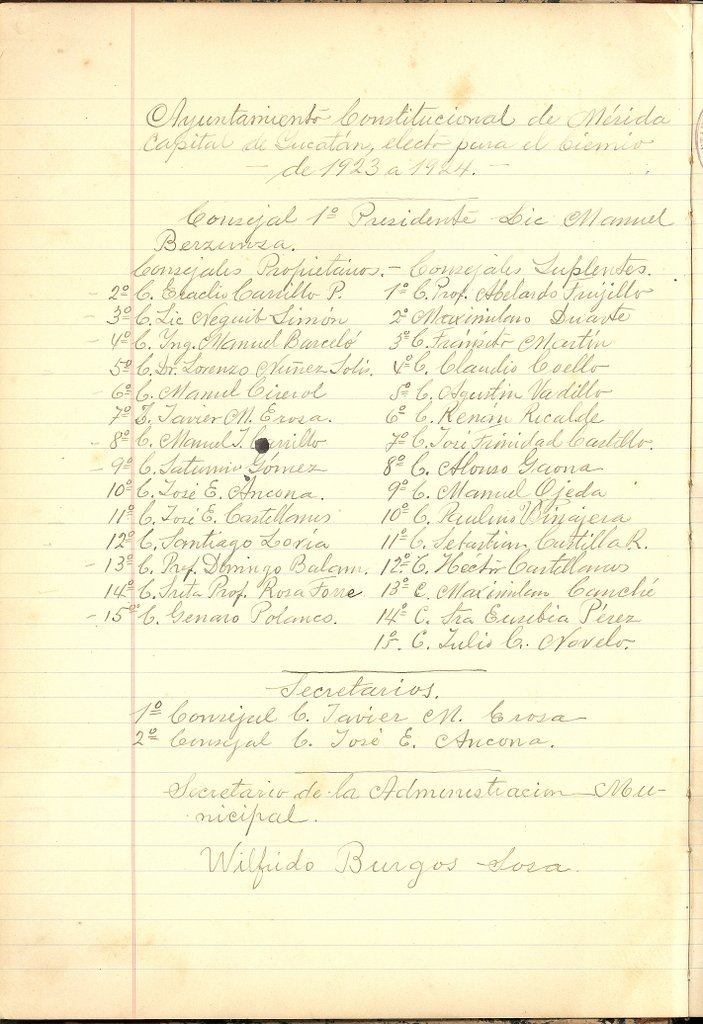 Ayuntamiento Constitucional de Mérida
Capital de Yucatán, electo para el biemio
- de 1923 a 1924. -
Consejal 1º Presidente Lic Manuel
Berzunza.
Consejales Propietarios. - Consejales Suplentes.
2º C. Eraclio Carrillo P. 1º C. Prof. Abelardo Trujillo
3º C. Lic Neguib Simón 2º Maximiliano Duarte
4º C. Yng. Manuel Barceló 3º C. Tránsito Martín
5º C. Dr. Lorenzo Nuñez Solis. 4º C. Claudio Coello
6º C. Manuel Cirerol 5º C. Agustin Vadillo
7º C. Javier M. Erosa. 6º C. Renán Ricalde
8º C. Manuel J. Carrillo 7º C. José Trinidad Castillo.
9º C. Saturnio Gómez 8º C. Alonso Gaona
10º C. José E. Ancona. 9º C. Manuel Ojeda
11º C. José E. Castellanos 10º C. Paulino Vinajera
12º C. Santiago Loría 11º C. Sebastian Castilla R.
- 13º C. Prof. Domingo Balam. 12º C. Hector Castellanos
14º C. Srita Prof. Rosa Torre 13º C. Maximilian Canché
- 15º C. Genaro Polanco. 14º C. Sra Eusebia Pérez
15. C. Julio C. Novelo.
Secretarios.
1º Consejal C. Javier M. Erosa
2º Consejal C. José E. Ancona.
Secretario de la Administracion Mu-
nicipal.
Wilfrido Burgos Sosa.